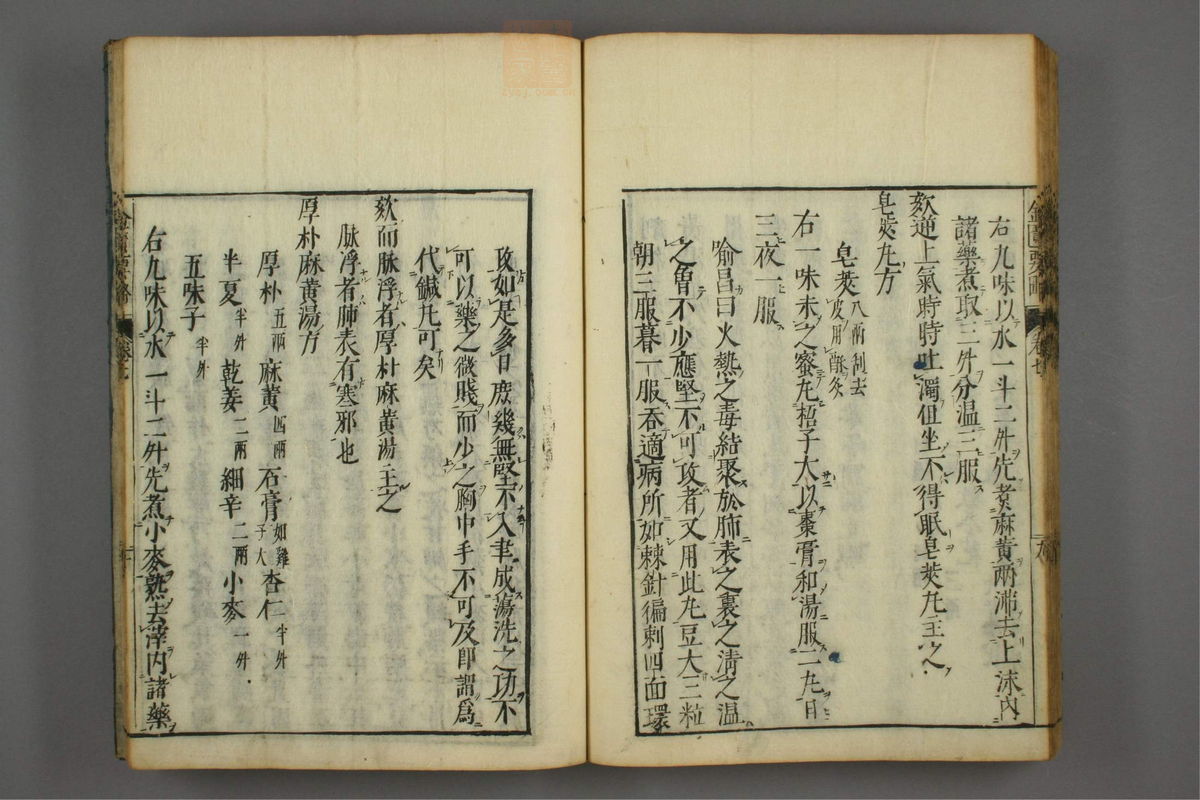 右九味以水一斗二升先煮麻黄兩沸去上沫內
諸藥煮取三升分温三服
欬逆上氣時時吐濁但坐不得眠皂莢丸主之
皂莢丸方
皂莢八兩刮去皮用酥炙
右一味末之蜜丸梧子大以棗膏和湯服三丸日
三夜一服
喻昌曰火熱之毒結聚於肺表之裏之清之温
之曾不少應堅不可攻者又用此丸豆大三粒
朝三服暮一服吞適病所如棘針徧刺四面環
攻如是多日庶幾無堅不入聿成蕩洗之功不
可以藥之微賤而少之胸中手不可及卽謂爲
代鍼丸可矣
欬而脉浮者厚朴麻黄湯主之
脉浮者肺表有寒邪也
厚朴麻黄湯方
厚朴五兩 麻黄四兩 石膏如雞子大 杏仁半升
半夏半升 乾姜二兩 細辛二兩 小麥一升
五味子半升
右九味以水一斗二升先煮小麥熟去滓內諸藥